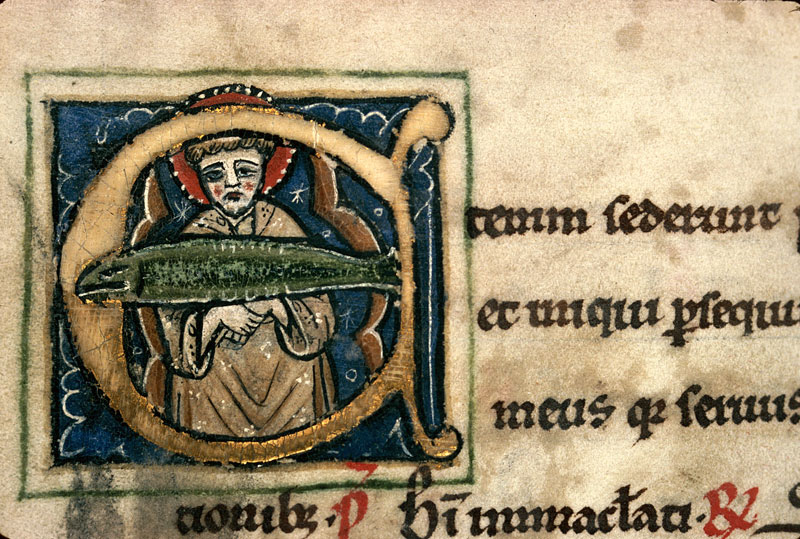 Etenim sederunt p
et iniqui psequu
meus q̄ seruus
tionibꝫ. p̄ Bī inmacłati. &